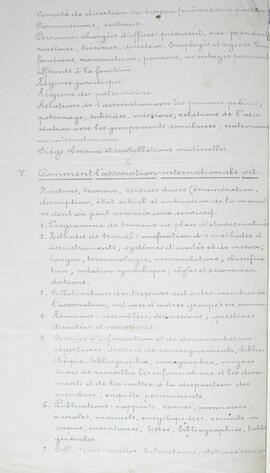 Comité de direction ou bureau (mêmes sous questions)
Commissions, sections.
Personnes chargées d'offices: président, vice-président
secrétaire, trésorier, directeur. Employés et agents. Leurs
fonctions, nominations, pouvoirs, avantages personnels
afférents à la fonction.
Régime juridique
Régime du patrimoine
Relations de l'association avec les pouvoirs publics,
patronage, subsides, missions; relations de l'asso-
ciation avec les groupements similaires, nationaux
ou internationaux.
Siège, Locaux et installations matérielles.
V. Comment l'association internationale vit.
Fonctions, travaux, services divers (énumération,
description, état actuel et indication de la manière
dont on peut recourir aux services).
1. Programme de travaux ou plan d'études
2. Méthodes de travail: unification des méthodes &
des instruments; systèmes d'unités et de mesure;
langue, terminologie, nomenclature, classifica-
tion, notation symbolique; règles et recomman-
dations.
3. Collaborations et entreprises soit entre membres de
l'association, soit avec d'autres groupes en commun
4. Réunions, assemblées, questions
discutées et
5. Services d'information et de documentation
répertoires, de renseignements, biblio-
thèque, bibliographie,
divers de recueillir les informations et les docu-
ments et de les mettre à la disposition des
membres, enquête permanente.
6. Publications: rapports, revues, annuaires,
annales, manuels, encyclopédies, recueils ou
corpus, inventaires, listes, bibliographies, tables
générales.
7. musées, laboratoires,